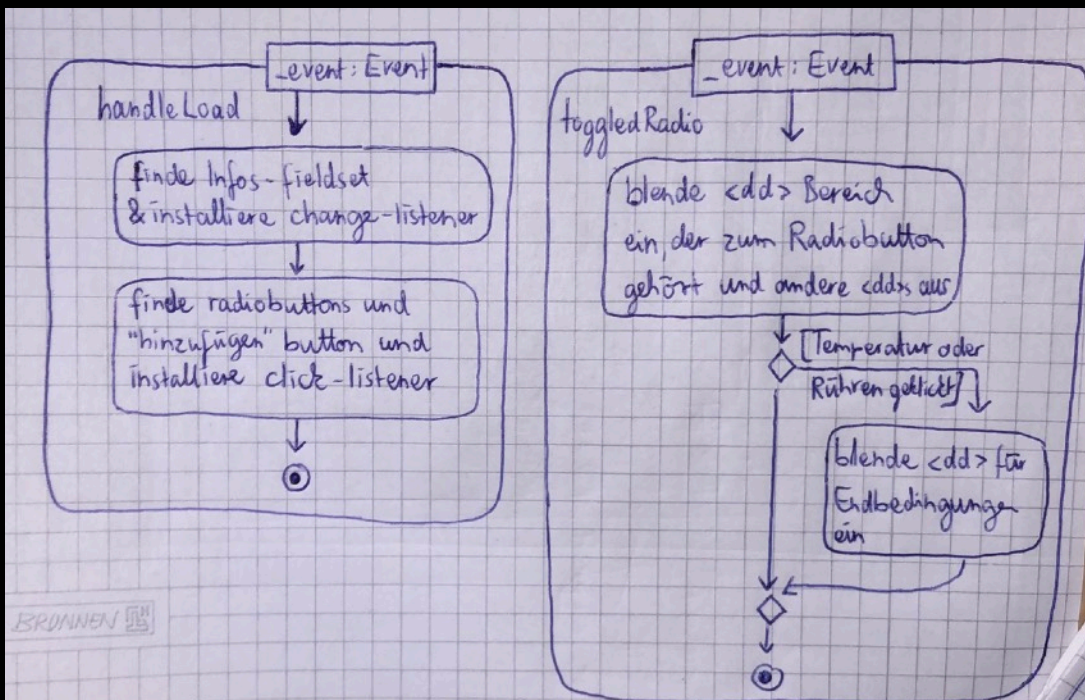 _event: Event
handleLoad
finde Infos-fieldset
& installiere change-listener
finde radiobuttons und
"hinzufügen" button und
installiere click-listener
_event: Event
toggledRadio
blende <dd> Bereich
ein, der zum Radiobutton
gehört und andere <dd>s aus
[Temperatur oder
Rühren geklickt]
blende <dd> für
Endbedingungen
ein
BRUNNEN